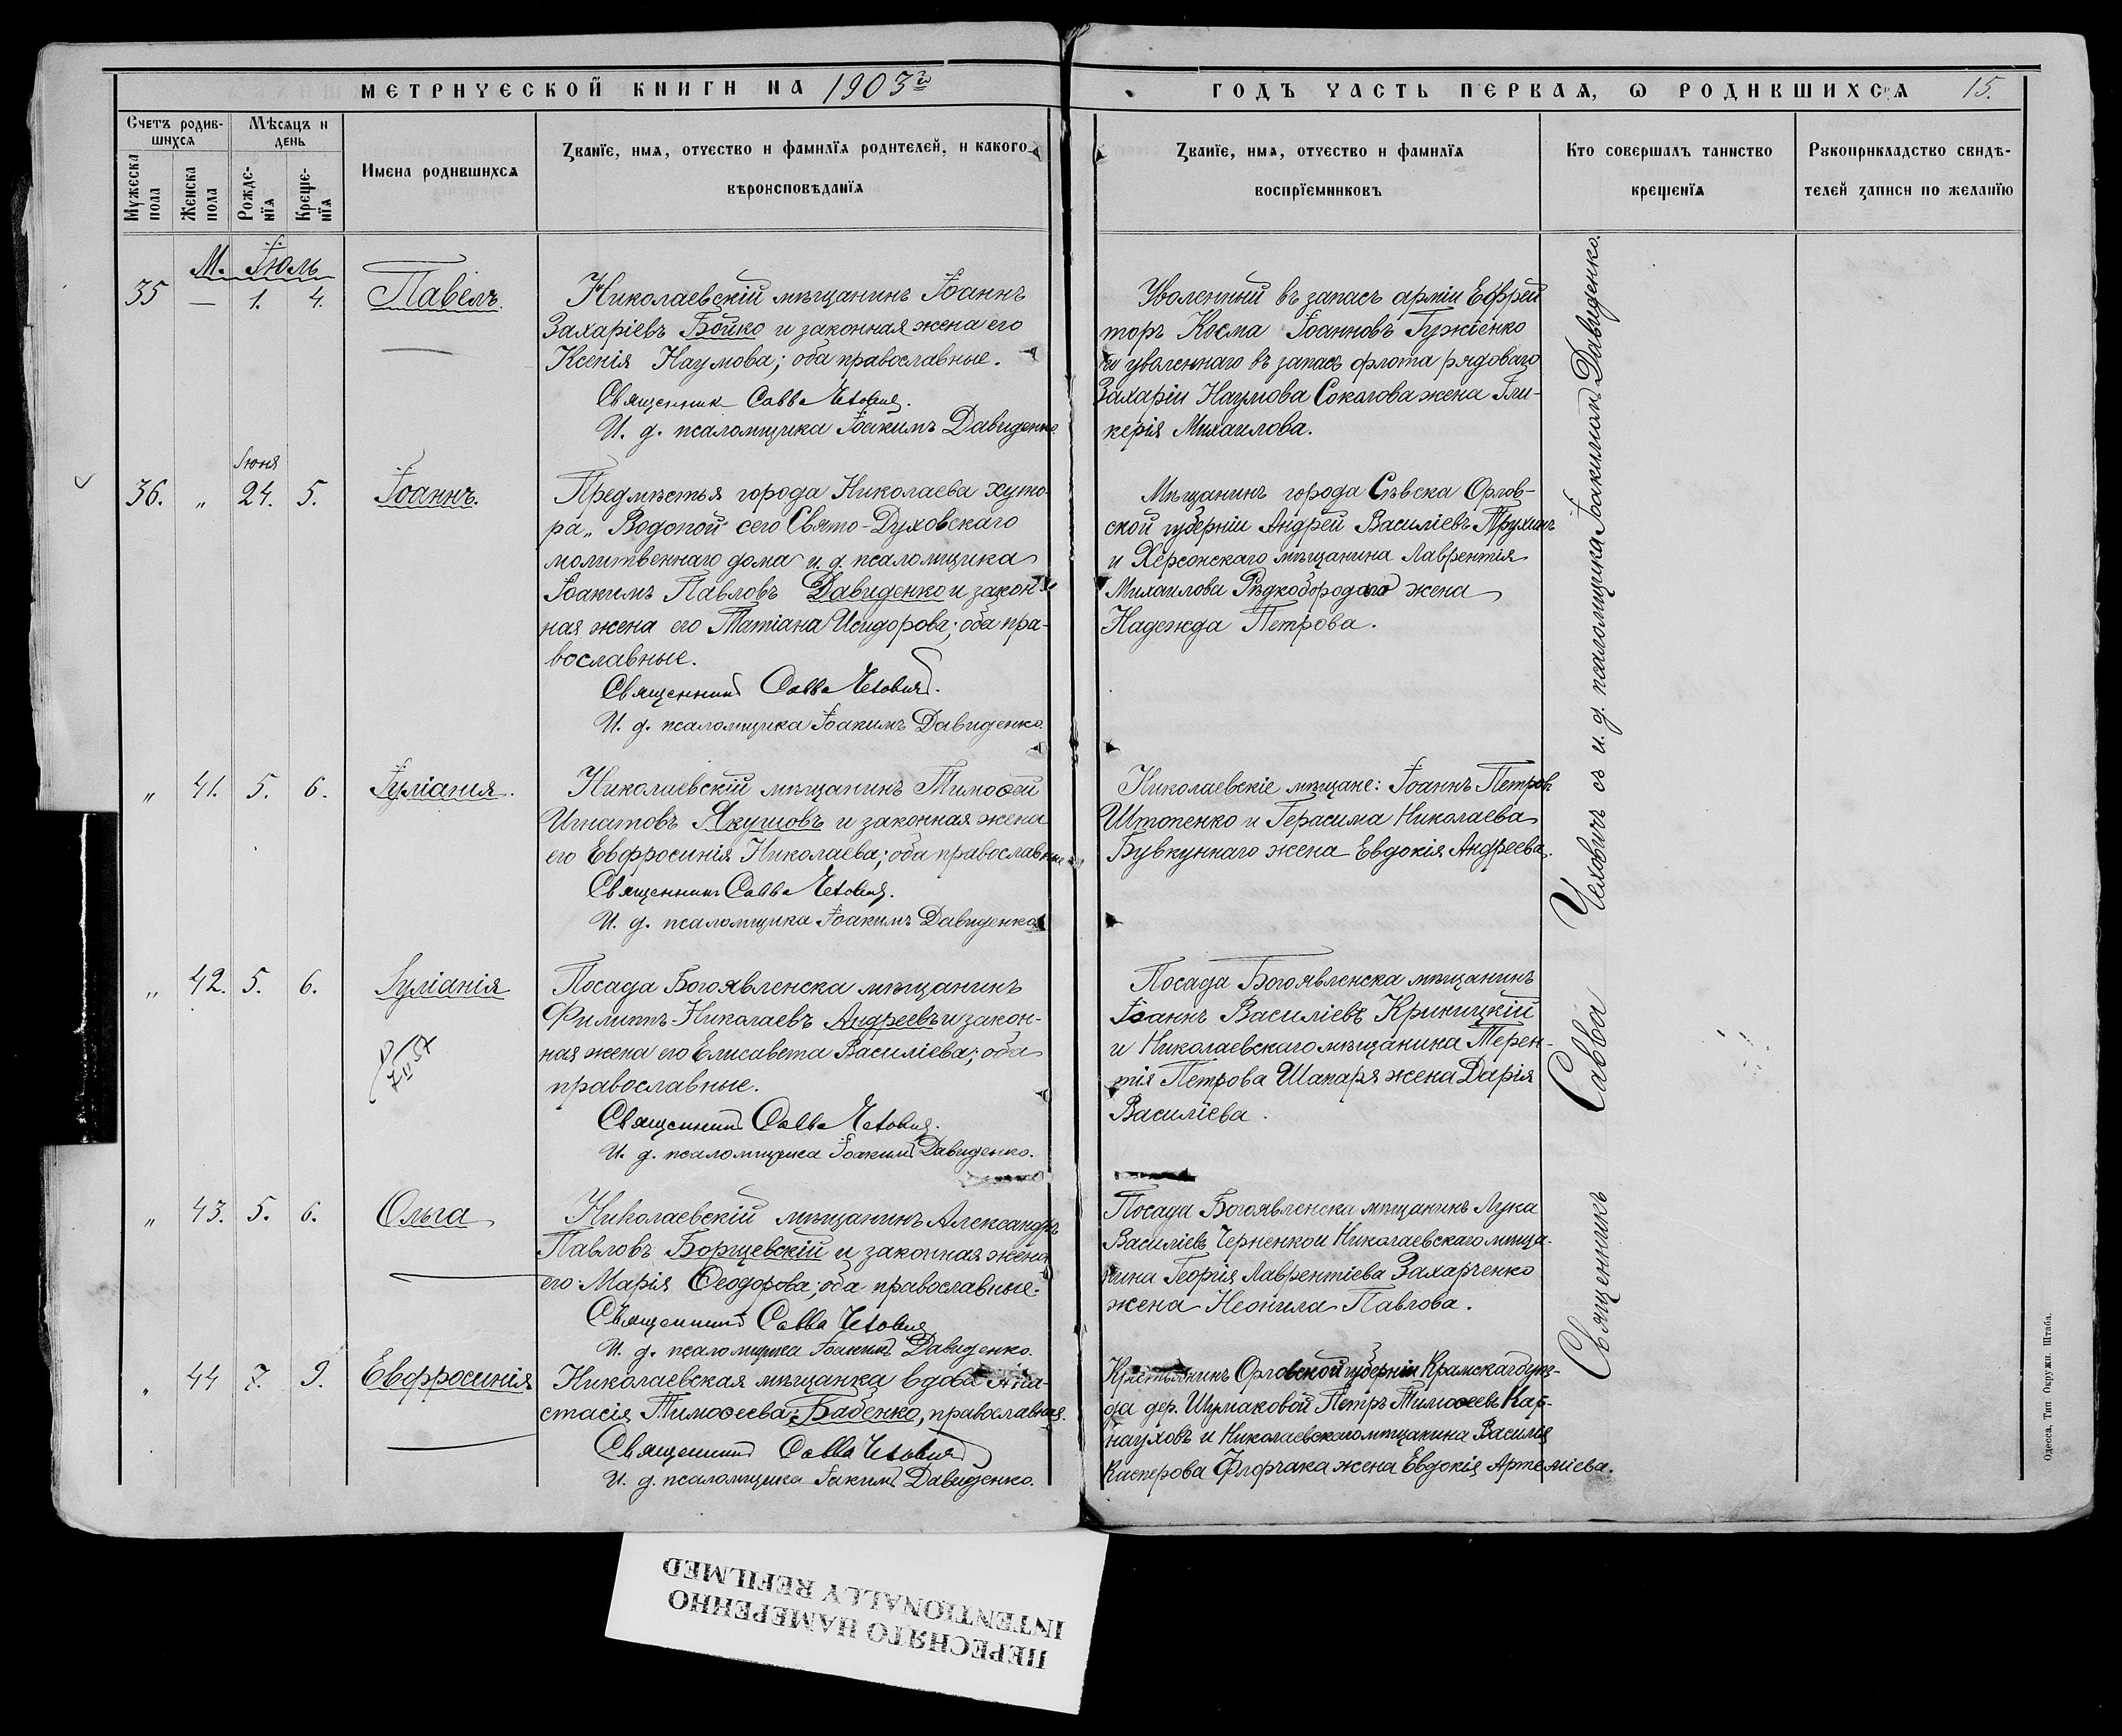 МЕТРИЧЕСКОЙ КНИГИ НА 1903й
ГОДЪ ЧАСТЬ ПЕРВАЯ, Ѡ РОДИВШИХСЯ 15.
Счетъ родив-
шихся
Мѣсяцъ и
день
Мужеска
пола
Женска
пола
Рожде-
нїя
Креще-
нїя
Имена родившихся
Званїе, имя, отчество и фамилїя родителей, и какого
вѣроисповѣданїя
Званїе, имя, отчество и фамилїя
воспрїемниковъ
Кто совершалъ таинство
крещенїя
Рукоприкладство свидѣ-
телей записи по желанїю
М. Іюль
35 — 1. 4. Павелъ.
Николаевскій мѣщанинъ Іоаннъ
Захаріевъ Бойко и законная жена его
Ксенія Наумова; оба православные.
Священник Савва Чехович.
И. д. псаломщика Іоакимъ Давиденко.
Уволенный въ запасъ арміи Ефрей
торъ Косма Іоанновъ Гужіенко
и уволеннаго въ запасъ флота рядоваго
Захаріи Наумова Соколова жена Гли-
керія Михаилова.
Іюня
36. „ 24. 5. Іоаннъ.
Предмѣстья города Николаева хуто-
ра „Водопой" сего Свято-Духовскаго
молитвеннаго дома и. д. псаломщика
Іоакимъ Павловъ Давиденко и закон-
ная жена его Татіана Исидорова; оба пра-
вославные.
Священник Савва Чехович.
И. д. псаломщика Іоакимъ Давиденко.
Мѣщанинъ города Сѣвска Орлов-
ской губерніи Андрей Василіевъ Трухинъ
и Херсонскаго мѣщанина Лаврентія
Михаилова Рѣдкобородаго жена
Надежда Петрова.
„ 41. 5. 6. Іуліанія.
Николаевскій мѣщанинъ Тимоѳей
Игнатовъ Якушовъ и законная жена
его Евфросинія Николаева; оба православные
Священникъ Савва Чехович.
И. д. псаломщика Іоакимъ Давиденко
Николаевскіе мѣщане: Іоаннъ Петровъ
Штопенко и Герасима Николаева
Бувкуннаго жена Евдокія Андреева.
„ 42. 5. 6. Іуліанія
7 II 57
Посада Богоявленска мѣщанинъ
Филиппъ Николаевъ Андреевъ и закон-
ная жена его Елисавета Василіева; оба
православные.
Священник Савва Чехович.
И. д. псаломщика Іоакимъ Давиденко.
Посада Богоявленска мѣщанинъ
Іоаннъ Василіевъ Криницкій
и Николаевскаго мѣщанина Терен-
тія Петрова Шапаря жена Дарія
Василіева.
„ 43. 5. 6. Ольга
Николаевскій мѣщанинъ Александръ
Павловъ Борщевскій и законная жена
его Марія Ѳеодорова; оба православные.
Священник Савва Чехович
И. д. псаломщика Іоакимъ Давиденко.
Посада Богоявленска мѣщанинъ Лука
Василіевъ Черненко и Николаевскаго мѣща-
нина Георгія Лаврентіева Захарченко
жена Неонила Павлова.
„ 44 7. 9. Евфросинія
Николаевская мѣщанка вдова Ана-
стасія Тимоѳеева Бабенко, православная.
Священник Савва Чехович
И. д. псаломщика Іакимъ Давиденко.
Крестьянинъ Орловской губерніи Крамскаго уѣз-
да дер. Шумаковой Петръ Тимоѳеевъ Кар-
науховъ и Николаевскаго мѣщанина Василія
Касперова Флорчака жена Евдокія Артеміева.
Священникъ Савва Чеховичъ съ и. д. псаломщика Іоакимомъ Давиденко.
Одесса, Тип. Окружн. Штаба.
ПЕРЕСНЯТО НАМЕРЕННО
INTENTIONALLY REFILMED